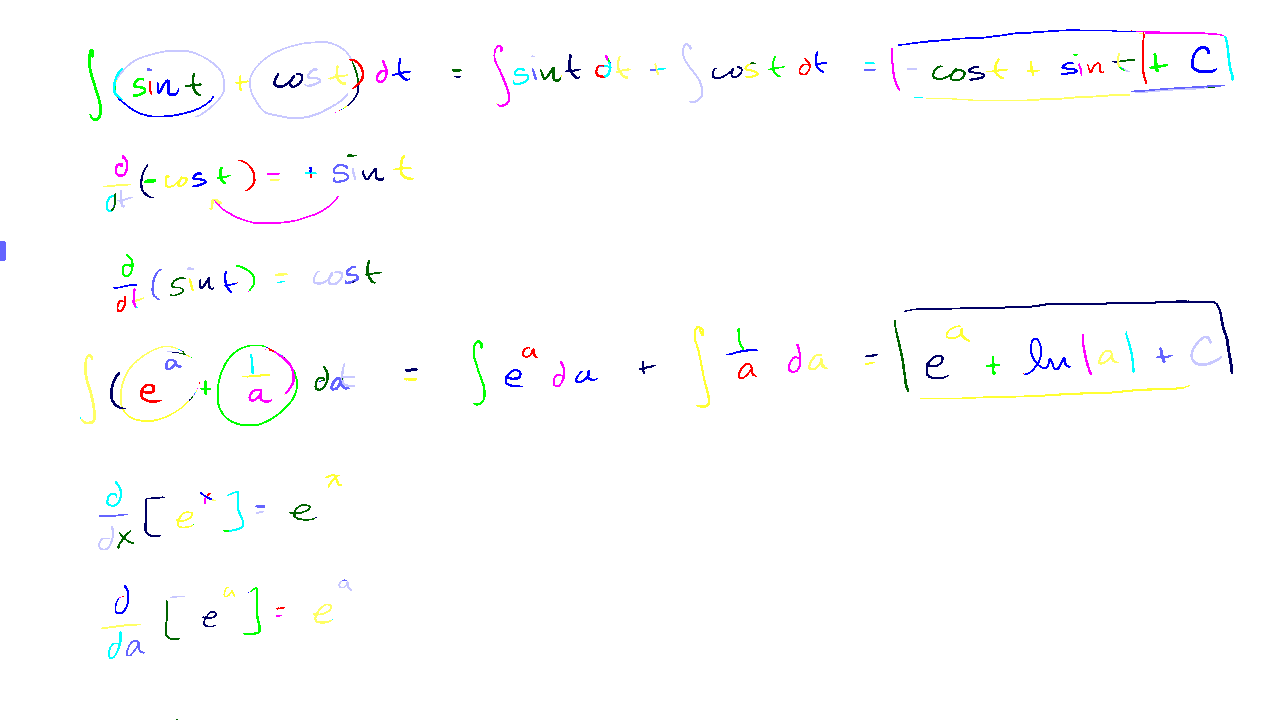 ∫ (sin t + cos t) dt = ∫ sin t dt + ∫ cos t dt = - cos t + sin t + C
d/dt (-cos t) = + sin t
d/dt (sin t) = cos t
∫ (e^a + 1/a) da = ∫ e^a da + ∫ 1/a da = e^a + ln|a| + C
d/dx [e^x] = e^x
d/da [e^a] = e^a